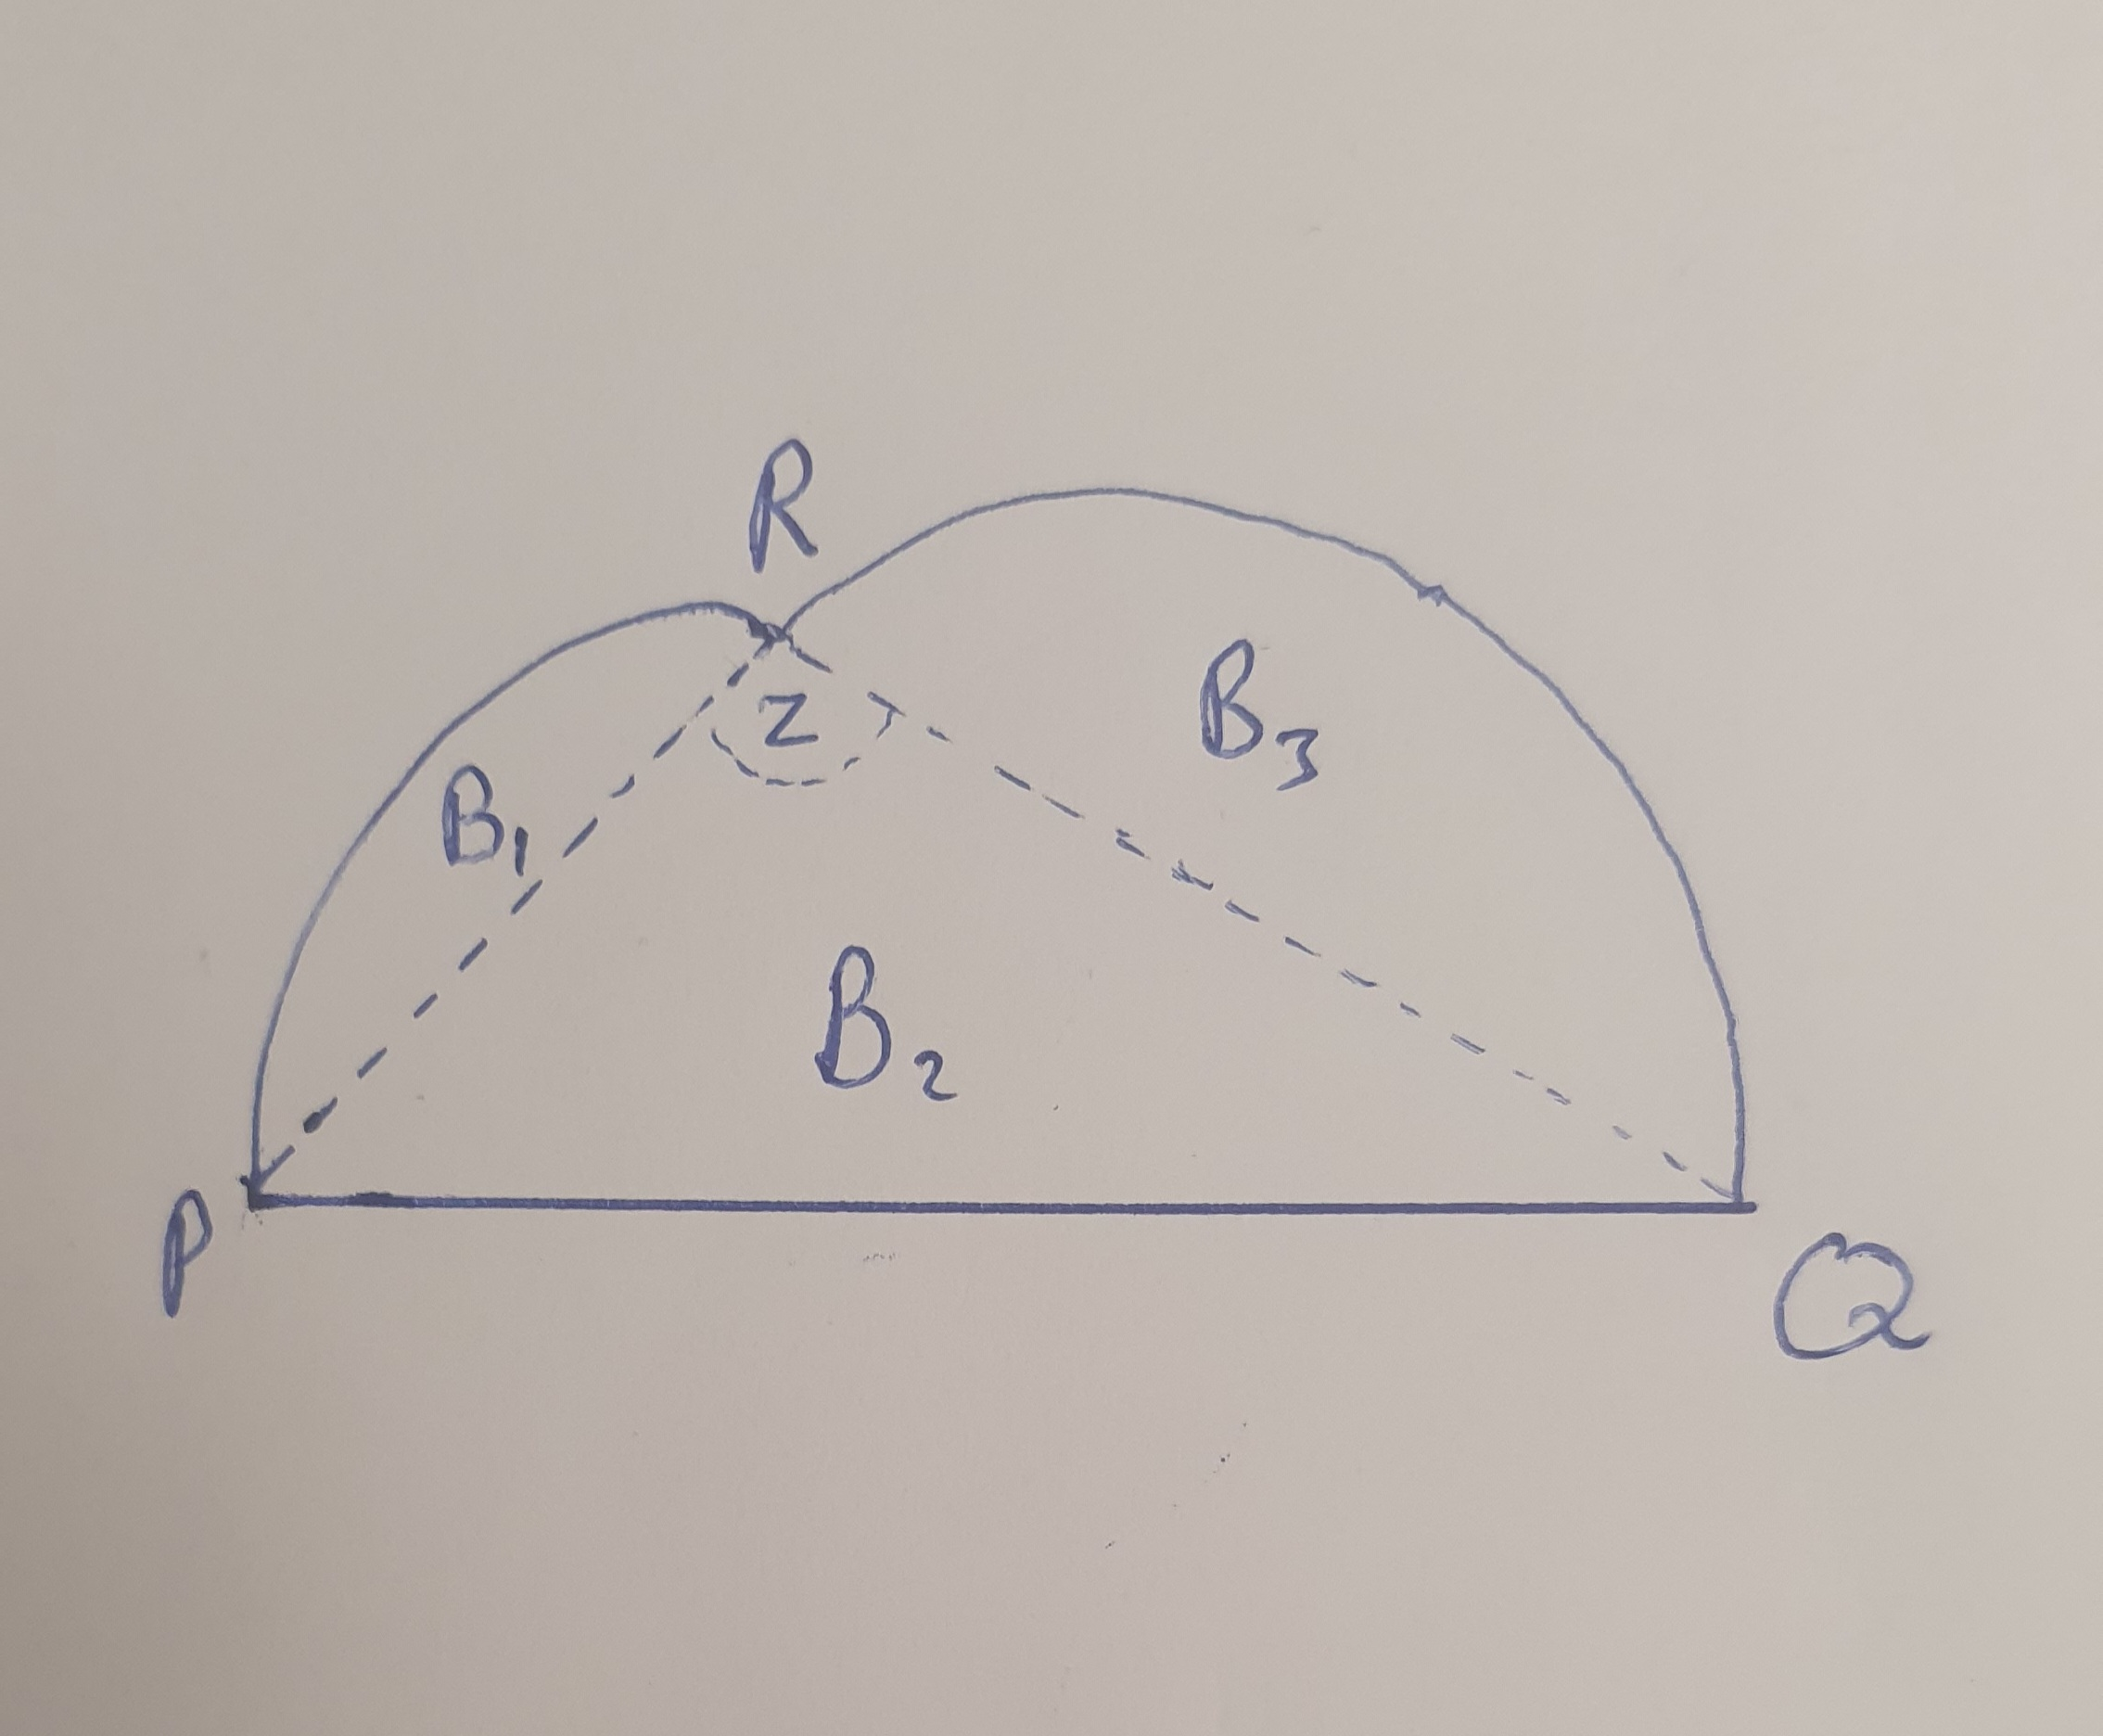 R
Z
B3
B1
B2
P
Q